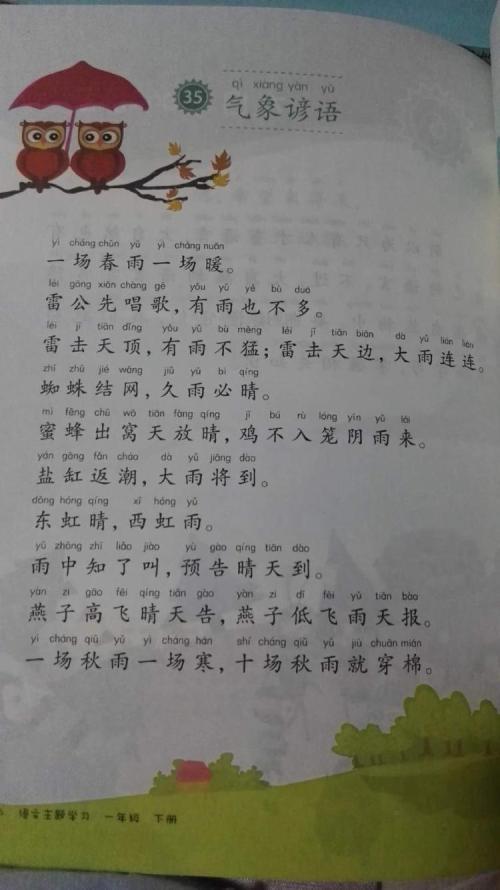 35
qì xiàng yàn yǔ
气象谚语
yì cháng chūn yǔ yì cháng nuǎn
一场春雨一场暖。
léi gōng xiān chàng gē yǒu yǔ yě bù duō
雷公先唱歌，有雨也不多。
léi jī tiān dǐng yǒu yǔ bù měng léi jī tiān biān dà yǔ lián lián
雷击天顶，有雨不猛；雷击天边，大雨连连。
zhī zhū jié wǎng jiǔ yǔ bì qíng
蜘蛛结网，久雨必晴。
mì fēng chū wō tiān fàng qíng jī bú rù lóng yīn yǔ lái
蜜蜂出窝天放晴，鸡不入笼阴雨来。
yán gāng fǎn cháo dà yǔ jiāng dào
盐缸返潮，大雨将到。
dōng hóng qíng xī hóng yǔ
东虹晴，西虹雨。
yǔ zhōng zhī liǎo jiào yù gào qíng tiān dào
雨中知了叫，预告晴天到。
yàn zi gāo fēi qíng tiān gào yàn zi dī fēi yǔ tiān bào
燕子高飞晴天告，燕子低飞雨天报。
yì cháng qiū yǔ yì cháng hán shí cháng qiū yǔ jiù chuān mián
一场秋雨一场寒，十场秋雨就穿棉。
语文主题学习 一年级 下册